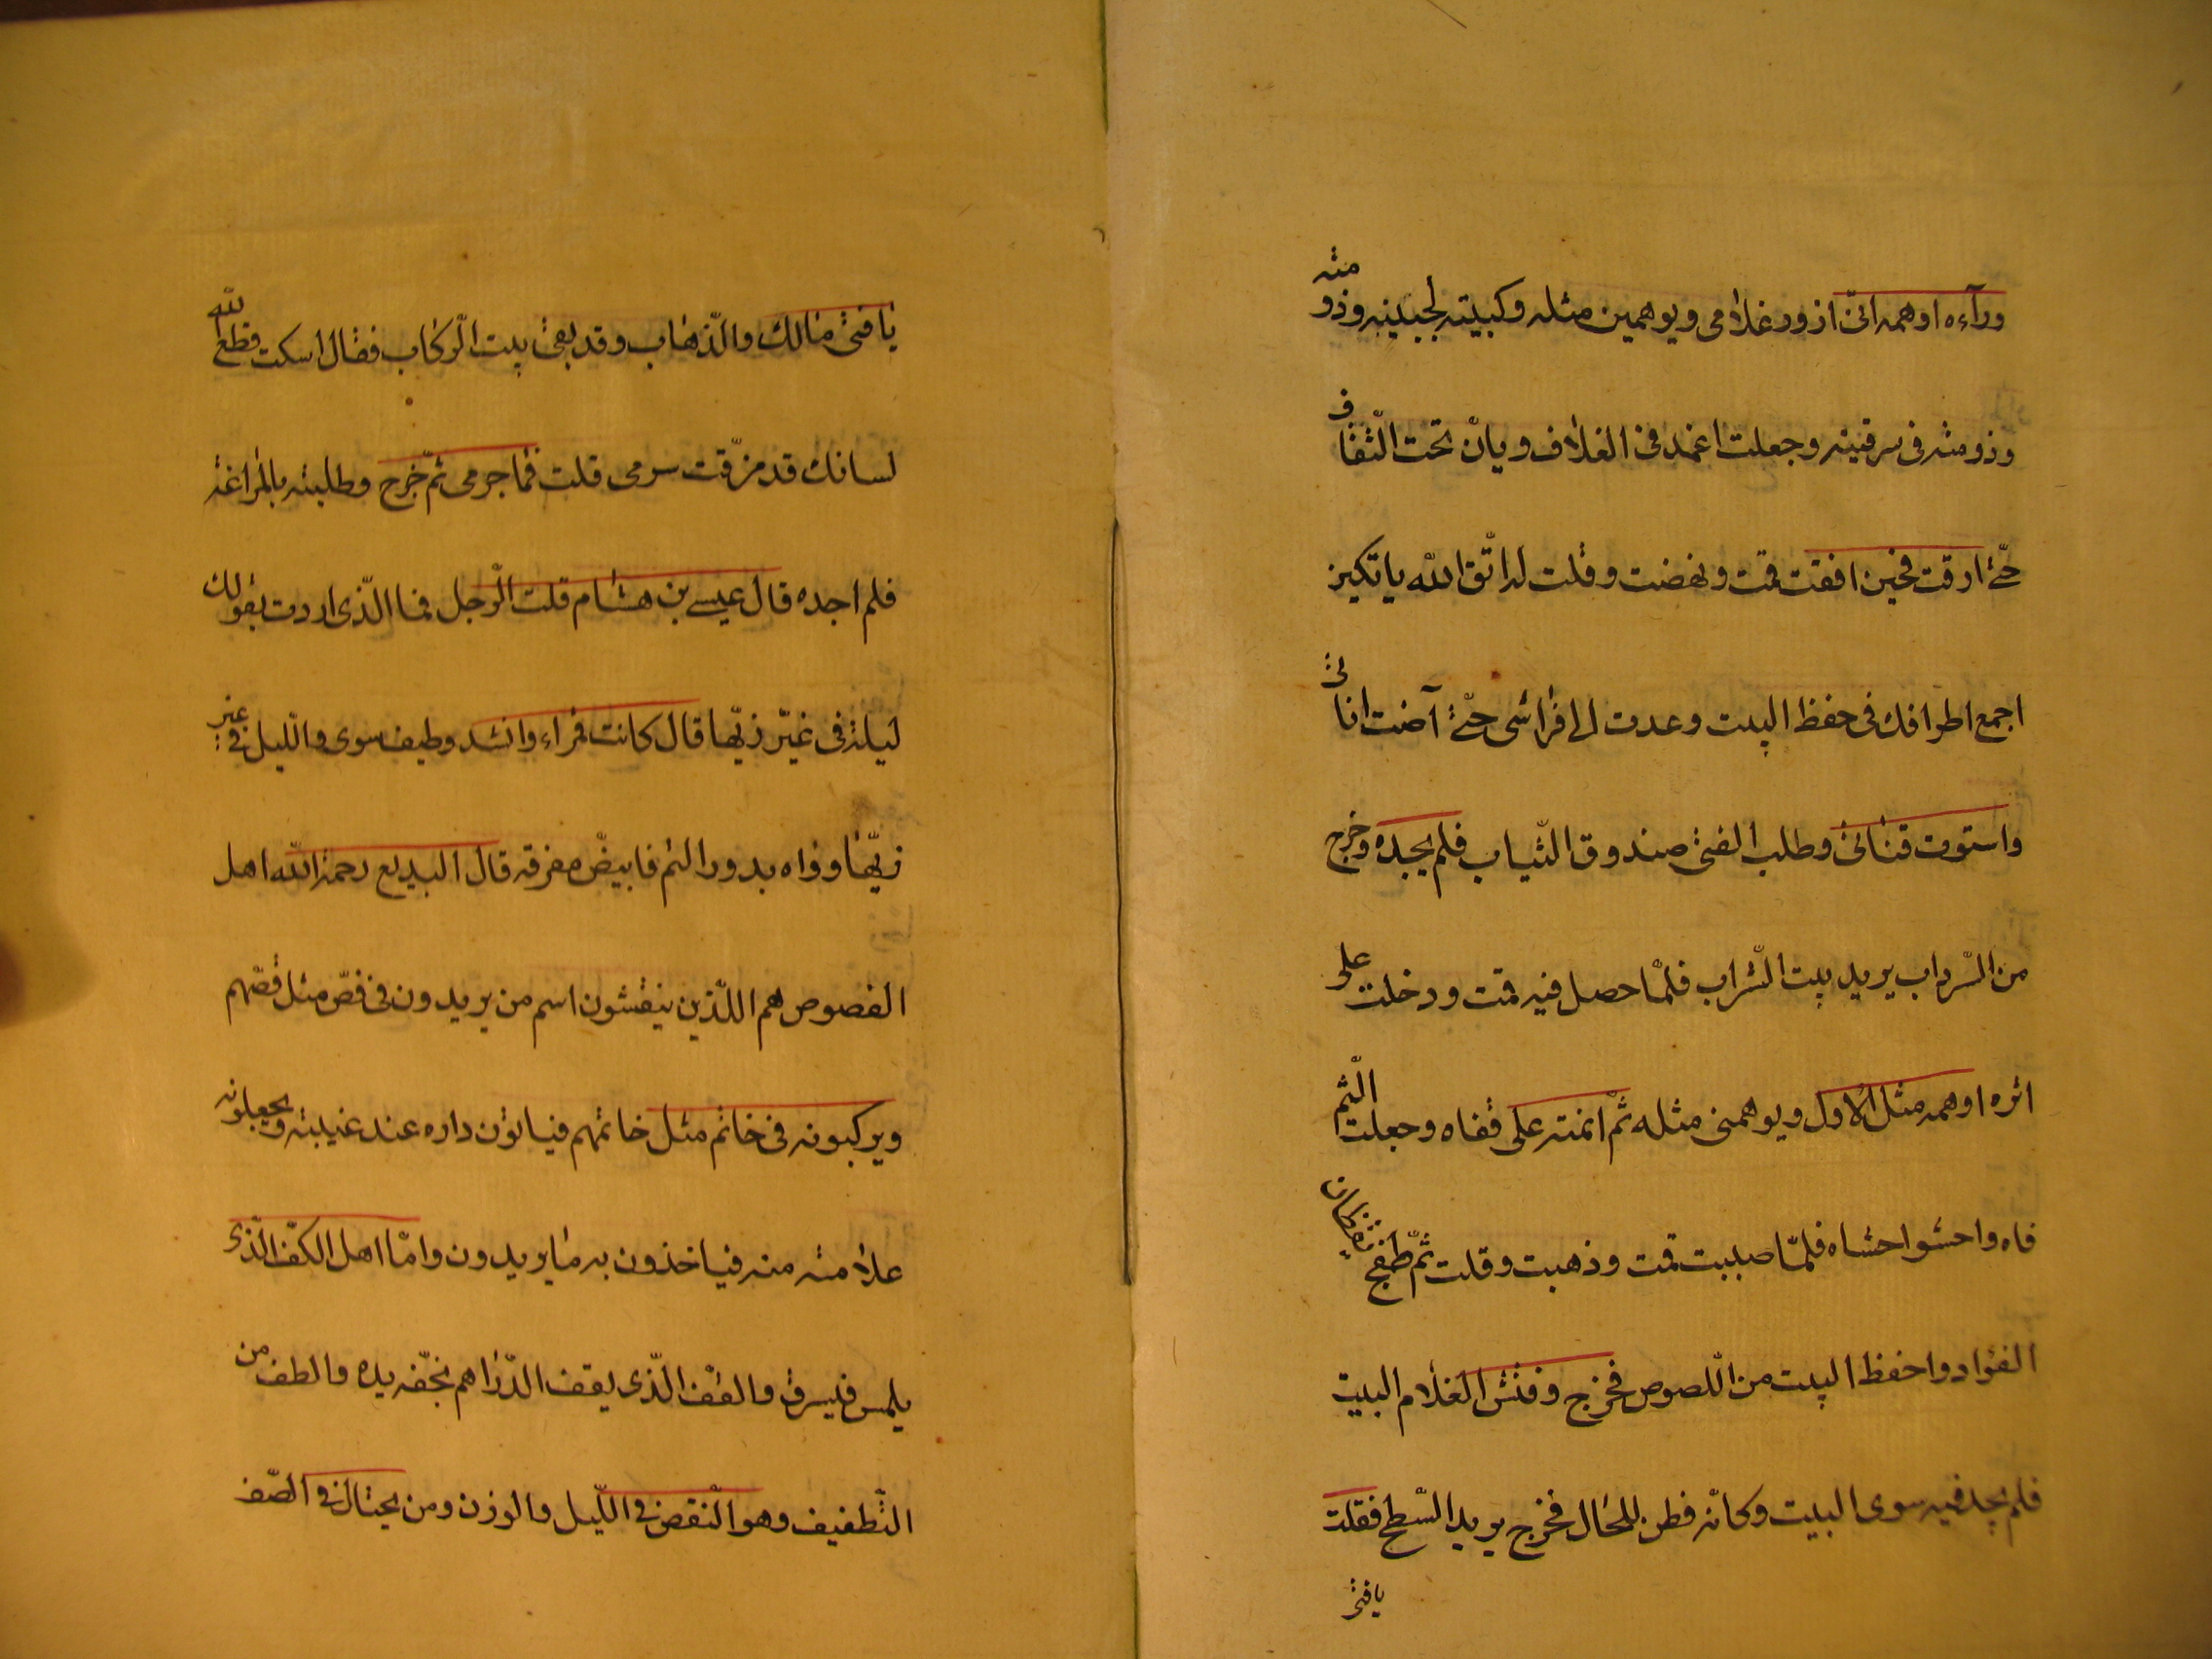 ورآءه اوهمه انّى ازور غلامى ويوهمين مثله وكبيته لجبينه وذو منه
وذو منه فى سرقينه وجعلت اغمد فى الغلاف ويان تحت الثّفاف
حتّى ارقت فحين افقت قمت ونهضت وقلت له اتّق الله يا تكيز
اجمع اطرافك فى حفظ البيت وعدت الى فراشى حتّى آضت اناتى
واستوت قناتى وطلب الفتى صندوق الثّياب فلم يجده وخرج
من السّرداب يريد بيت الشّراب فلمّا حصل فيه قمت ودخلت على
اثره اوهمه مثل الاول ويوهمنى مثله ثمّ انمته على قفاه وجعلت الثم
فاه واحشو احشاه فلمّا صببت قمت وذهبت وقلت ثمّ طفج يقظان
الفؤاد واحفظ البيت من اللّصوص فخرج وفتش الغلام البيت
فلم يجد فيه سوى البيت وكانّه فطن للحال فخرج يريد السّطح فقلت
يا فتى
يا فتى مالك والذّهاب وقد بقى بيت الرّكاب فقال اسكت قطع الله
لسانك قد مزّقت سرمى قلت فما جرمى ثمّ خرج وطلبته بالمراغة
فلم اجده قال عيسى بن هشام قلت الرّجل فما الّذى اردت بقولك
ليلة فى غيّر زيّها قال كانت قمراء وانشد وطيف سوى واللّيل فى غير
زيّها وواه بدور التم فابيضّ مفرقه قال البديع رحمة الله اهل
الفصوص هم اللّذين ينقشون اسم من يريدون فى فصّ مثل فصّهم
ويركبونه فى خاتم مثل خاتمهم فياتون داره عند غيبته ويجعلونه
علامة منه فياخذون به ما يريدون وامّا اهل الكفّ الّذى
يلمس فيسرق والقفّ الّذى يقف الدّراهم بخفّه يده والطف من
التّطفيف وهو النّقص فى اللّيل والوزن ومن يحتال فى الصّف